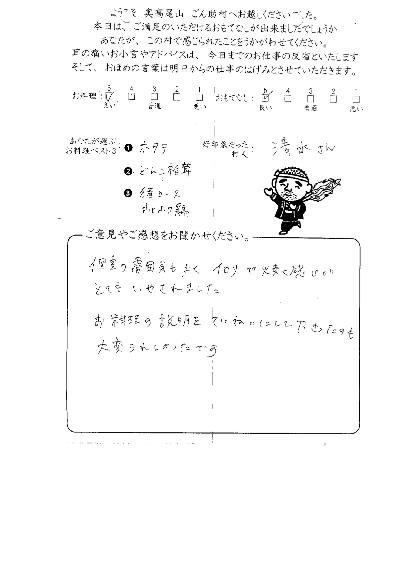 ようこそ 奥高尾山 ごん助村へお越しくださいました。
本日は、ご満足のいただけるおもてなしが出来ましたでしょうか
あなたが、この村で感じられたことをうかがわせてください。
耳の痛いお小言やアドバイスは、今日までのお仕事の反省といたします
そして、おほめの言葉は明日からの仕事のはげみとさせていただきます。
お料理: 5 4 3 2 1 おもてなし: 5 4 3 2 1
良い 普通 悪い 良い 普通 悪い
あなたが選ぶ
お料理ベスト3: ❶ ホタテ
❷
❸
好印象だった
村人: 清水さん
ご意見やご感想をお聞かせください。
個室の雰囲気も良く イロリが火暖く感じが
とてもいやされました
お料理の説明をていねいにして下さったのも
大変うれしかったです